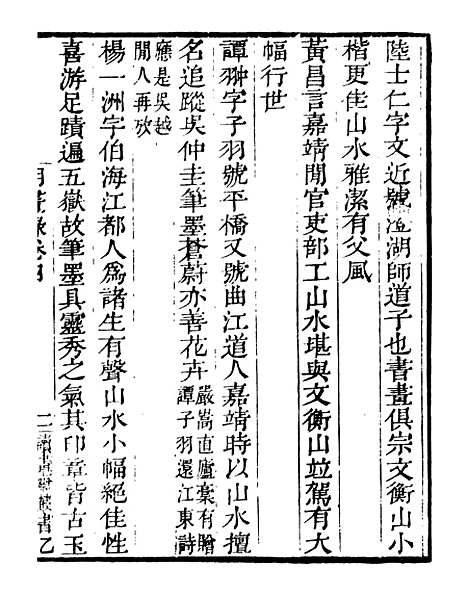 陸士仁字文近號澄湖師道子也書畫俱宗文衡山小
楷更佳山水雅潔有父風
黃昌言嘉靖閒官吏部工山水堪與文衡山竝駕有大
幅行世
譚翀字子羽號平橋又號曲江道人嘉靖時以山水擅
名追蹤吳仲圭筆墨蒼蔚亦善花卉嚴嵩直廬葉有贈
譚子羽還江東詩
應是吳越
閒人再攷
楊一洲字伯海江都人爲諸生有聲山水小幅絕佳性
喜游足蹟遍五嶽故筆墨具靈秀之氣其印章皆古玉
明畫錄卷四
二 讀畫齋叢書乙